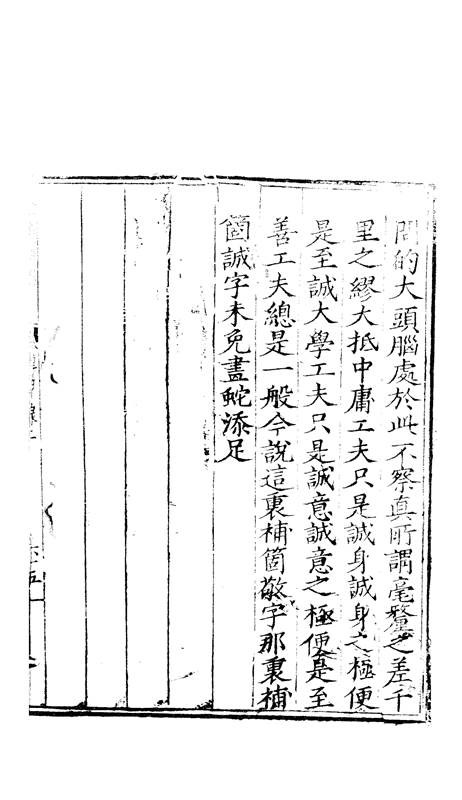 問的大頭腦處於此不察真所謂毫釐之差千
里之繆大抵中庸工夫只是誠身誠身之極便
是至誠大學工夫只是誠意誠意之極便是至
善工夫總是一般今說這裏補箇敬字那裏補
箇誠字未免畫蛇添足